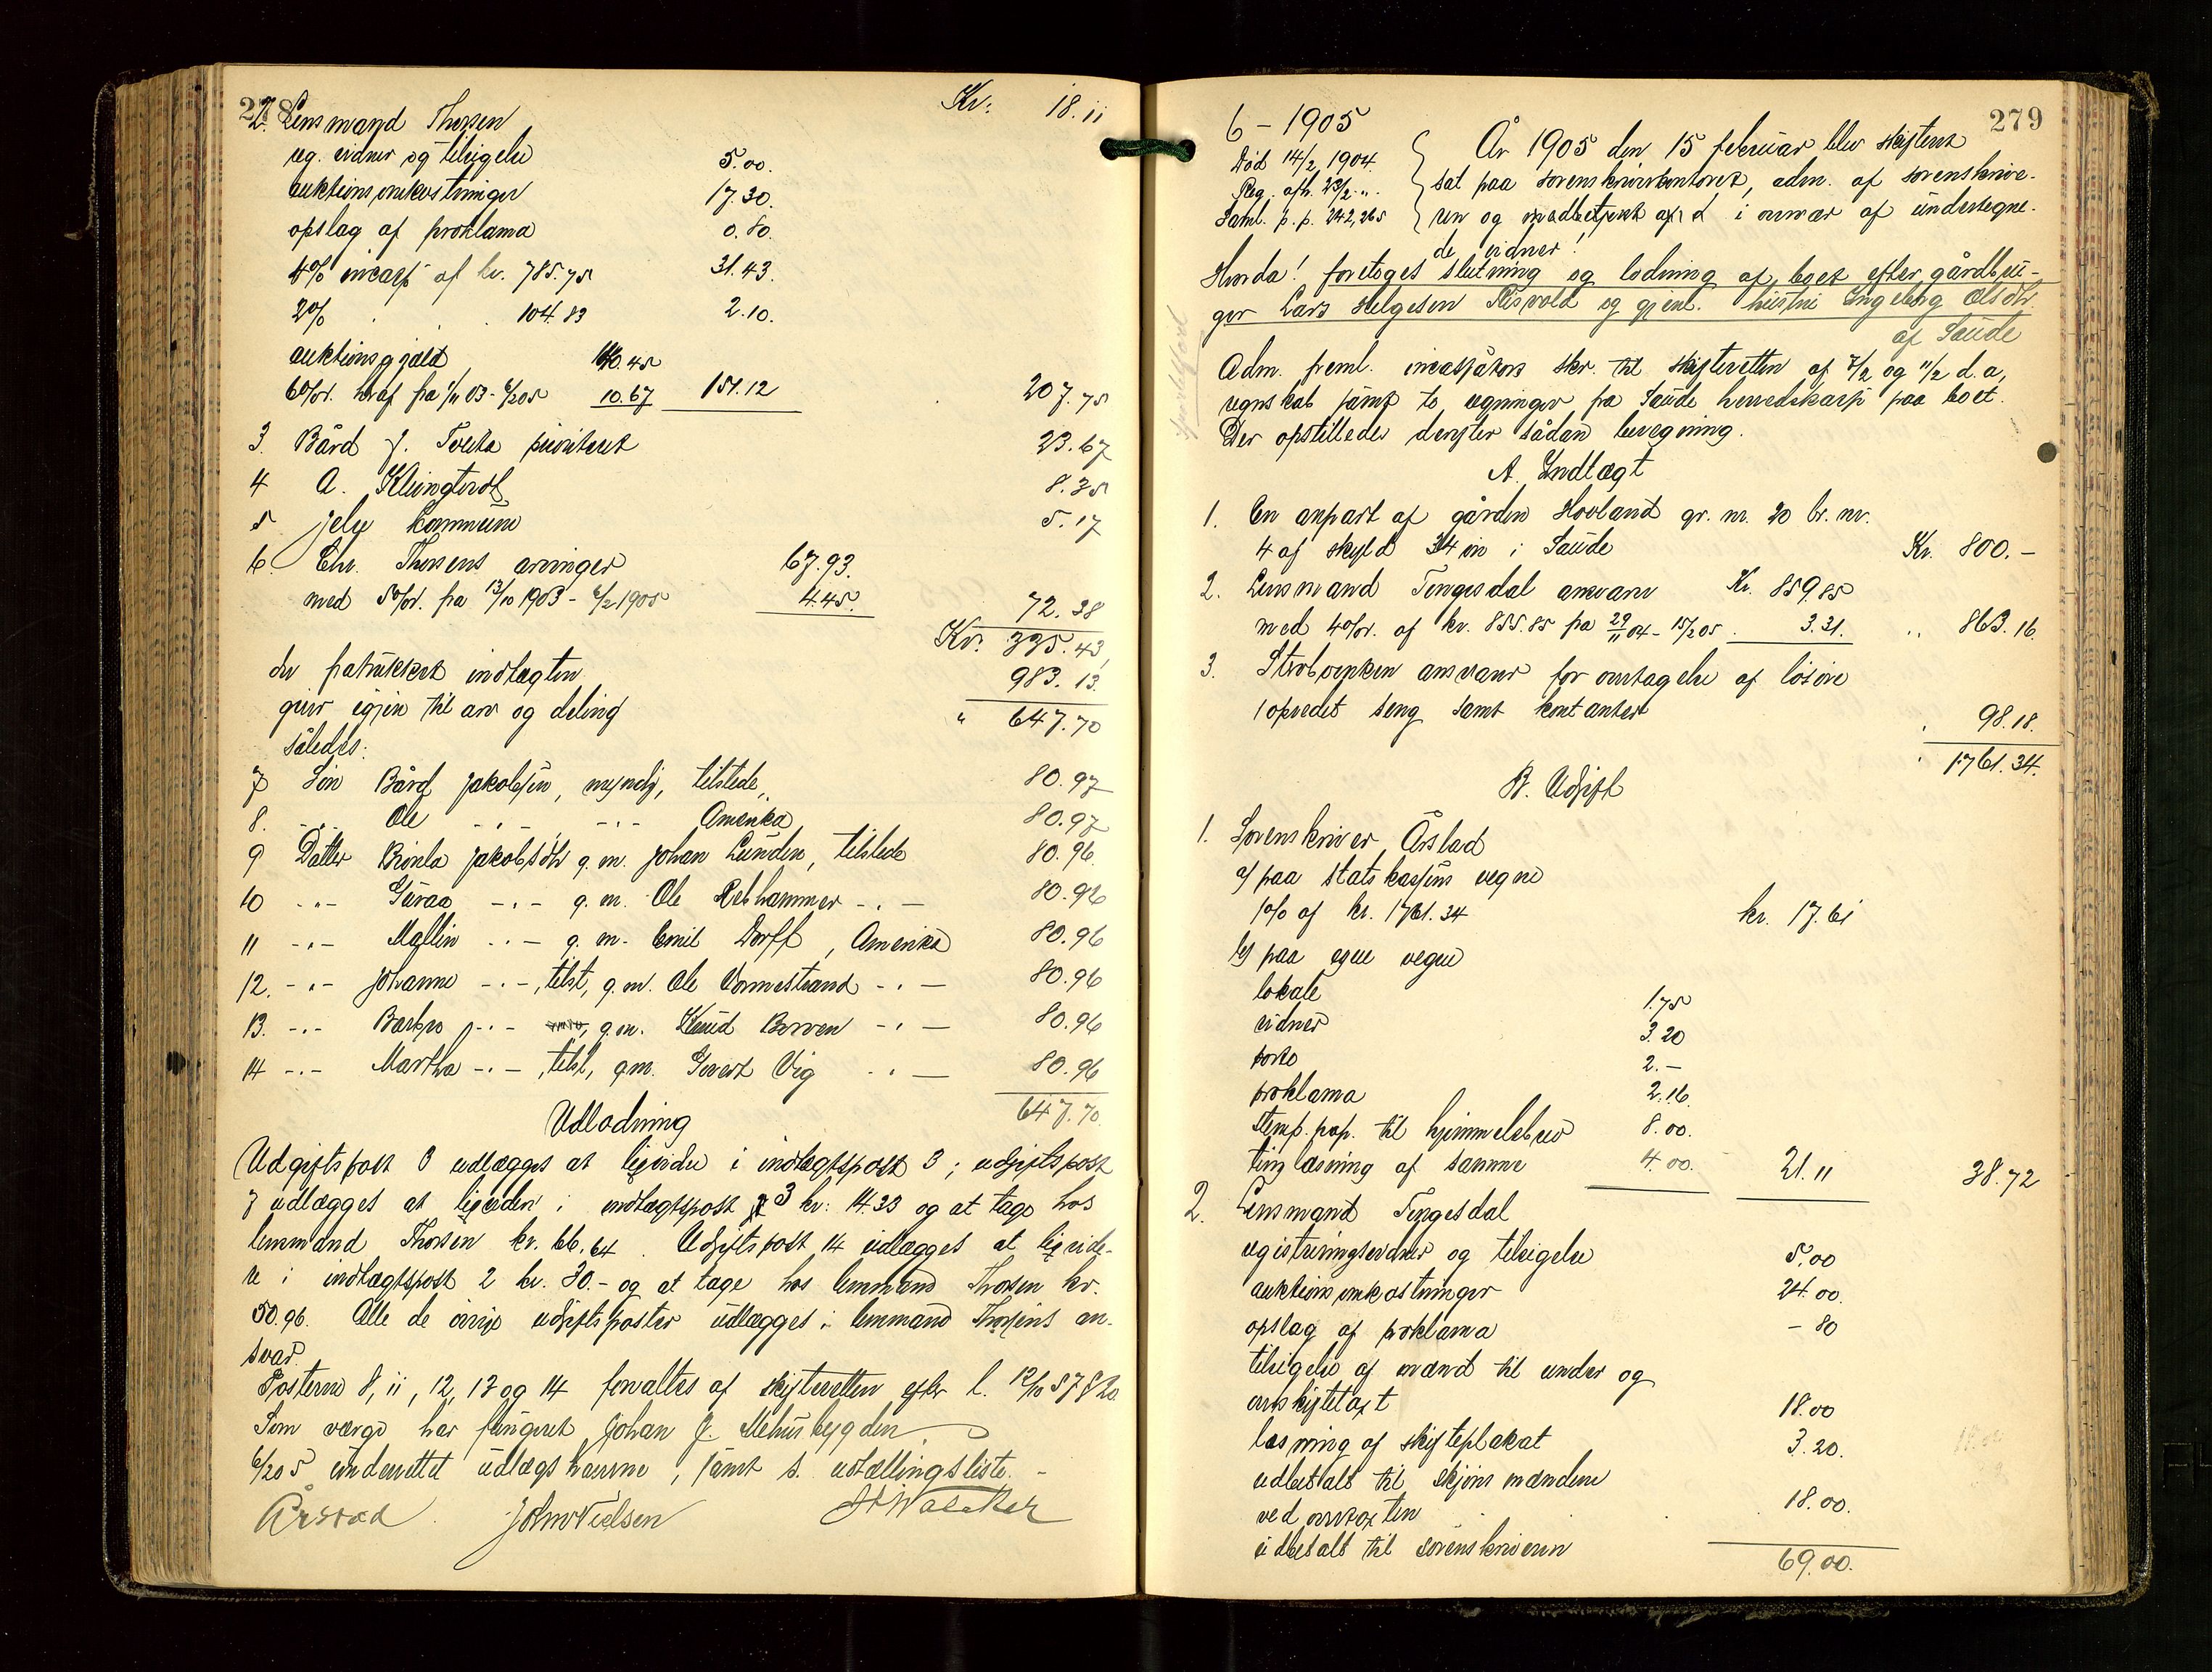 278
Kr. 18.11
2. Lensmand Thorsen
reg. vidner og tilsigelse 5.00.
auktionsomkostninger 17.30.
opslag af proklama 0.80.
4% incass. af kr. 785.75 31.43.
2% . . 104.83 2.10.
auktionsgjæld 140.45
6% heraf fra 1/11 03 - 6/2 05 10.67 151.12 207.75
3. Bård J. Tveita prioritert 23.67
4 A. Klungtvedt 8.35
5 Jelse kommune 5.17
6. Chr. Thorsens arvinger 67.93.
med 5% fra 13/10 1903 - 6/2 1905 4.45. 72.38
Kr. 335.43
der fratrukket indtægten 983.13.
giver igjen til arv og deling " 647.70
således:
7 Søn Bård Jakobsen, myndig, tilstede, 80.97
8. -"- Ole -"- -"- Amerika 80.97
9 Datter Brinla Jakobsdtr g.m. Johan Lunden, tilstede 80.96
10 -"- Guraa -"- g.m. Ole Rebhammer -"- 80.96
11 -"- Mallin -"- g.m. Emil Dorff, Amerika 80.96
12. -"- Johanne -"-, tilst, g.m. Ole Vormestrand -"- 80.96
13. -"- Barbro -"- g.m. Knud Borven -"- 80.96
14 -"- Martha -"-, tilst, g.m. Sivert Vig -"- 80.96
647.70
Udlodning
Udgiftspost 3 udlægges at liquidere i indtægtspost 3; udgiftspost
7 udlægges at liquidere i indtægtspost 3 kr: 14.33 og at tage hos
lensmand Thorsen kr. 66.64. Udgiftspost 14 udlægges at liquide-
re i indtægtspost 2 kr. 30.- og at tage hos lensmand Thorsen kr.
50.96. Alle de øvrige udgiftsposter udlægges i lensmand Thorsens an-
svar.
Posterne 8, 11, 12, 13 og 14 forvaltes af skifteretten efter l. 12/10 57 § 20.
Som værge har fungeret Johan J. Mehusbygden
6/2 05 underrettet udlægshaverne, jämt s. udtællingsliste. -
Årstad John Nielsen
279
6 - 1905
Död 14/2 1904.
Reg. afh. 23/2 "
Saml. p. p. 242, 265
År 1905 den 15 februar blev skifteret
sat paa sorenskriverkontoret, adm. af sorenskrive-
ren og medbetjent af i overvær af undertegne-
de vidner!
Hvorda! foretoges slutning og lodning af boet efter gårdbru-
ger Lars Helgesen Risvold og gjenl. hustru Ingeborg Olsdtr.
af Saude
Adm. freml. incassators skr. til skifteretten af 7/2 og 11/2 d.a,
regnskab jämt to regninger fra Saude herredskasse paa boet.
Der opstilledes derefter sådan beregning.
A. Indtægt
1. En anpart af gården Hovland gr. nr. 20 br. nr.
4 af skyld 34 øre i Saude Kr. 800.-
2. Lensmand Tengesdal ansvarer Kr. 859.85
med 4% af kr. 855.85 fra 29/11 04 - 15/2 05 3.31. " 863.16.
3. Stervboenken ansvarer for overtagelse af løsøre
1 opredet seng samt kontanter " 98.18.
" 1761.34.
B. Udgift
1. Sorenskriver Årstad
a) paa statskassens vegne
1% af kr. 1761.34 kr. 17.61
b) paa egne vegne
lokale 1.75
vidner 3.20
porto 2.-
proklama 2.16.
stemp. pap. til hjemmelsbrev 8.00.
tinglæsning af samme 4.00. 21.11 38.72
2. Lensmand Tengesdal
registreringsvidner og tilsigelse 5.00
auktionsomkostninger 24.00.
opslag af proklama - 80
tilsigelse af mænd til under og
overskjøtetaxt 18.00
læsning af skifteplakat 3.20.
udbetalt til skjønsmændene
ved overtaxten 18.00.
udbetalt til sorenskriveren
69.00.